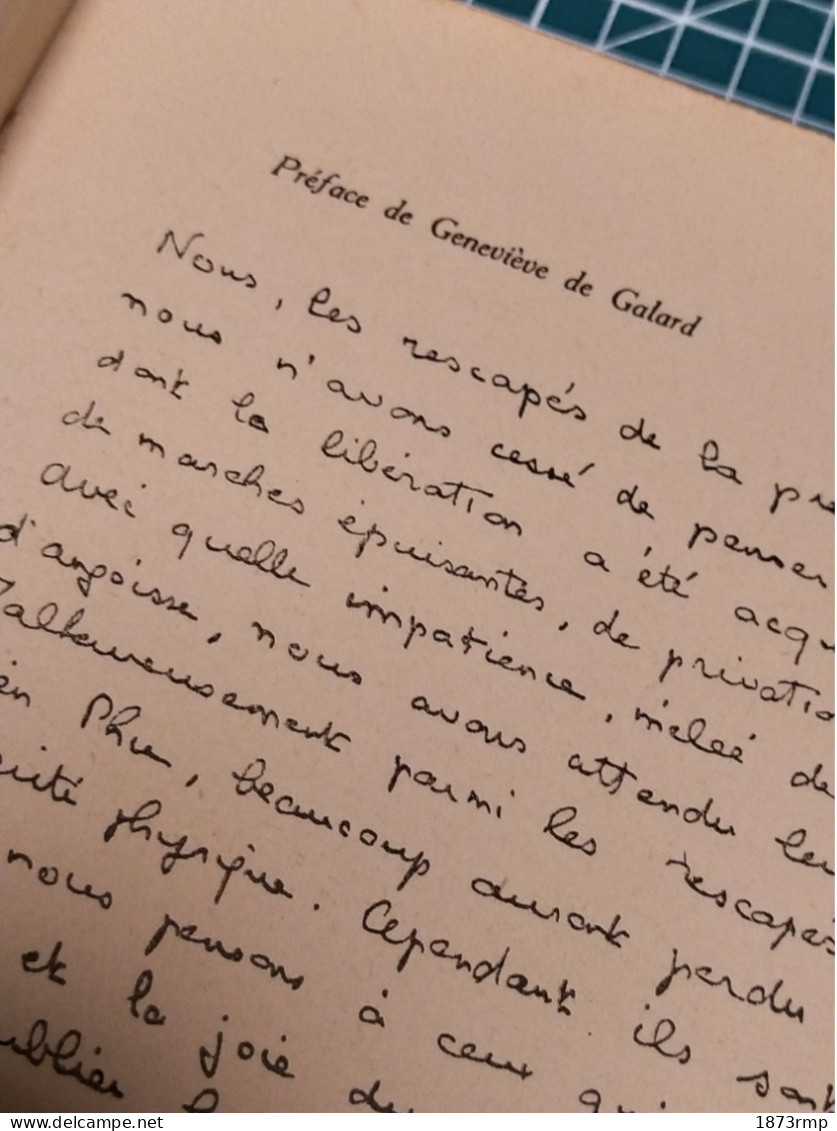 Préface de Geneviève de Galard
Nous, les rescapés de la pré
nous n'avons cessé de penser
dont la libération a été acqu
de marches épuisantes, de privatio
avec quelle impatience, mêlée de
d'angoisse, nous avons attendu leu
alheureusement parmi les rescapés
ên Phu, beaucoup auront perdu
rité physique. Cependant ils sont
nous pensons à ceux qui
et la joie du
ublier
delcampe.net
1873rmp